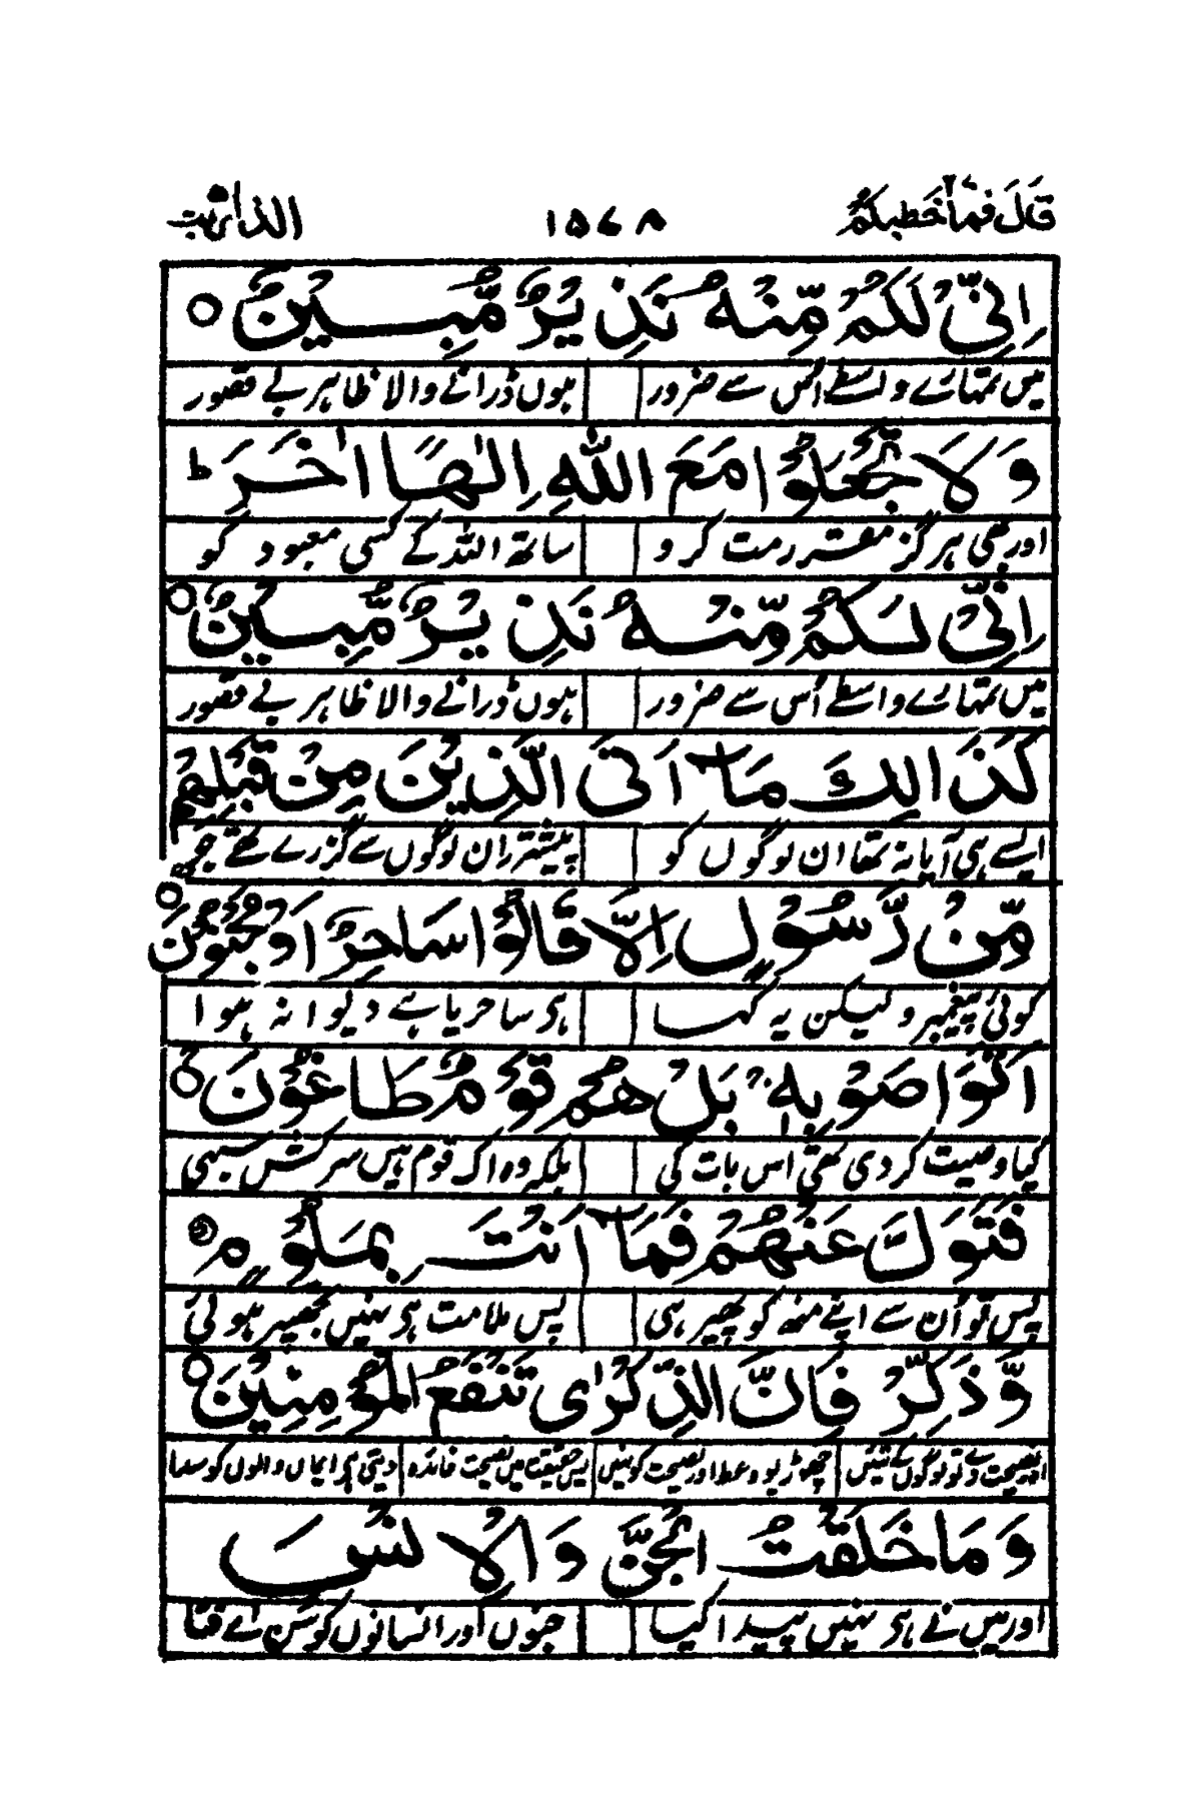 قَالَ فَمَا خَطْبُكُمْ ۱۵۷۸ الذاریٰت
اِنِّیْ لَكُمْ مِّنْهُ نَذِیْرٌ مُّبِیْنٌ ○
میں تمہارے واسطے اُس سے ضرور ہوں ڈرانے والا ظاہر بے قصور
وَ لَا تَجْعَلُوْا مَعَ اللّٰهِ اِلٰهًا اٰخَرَ ؕ
اور بھی ہرگز مقرر مت کرو ساتھ اللہ کے کسی معبود کو
اِنِّیْ لَكُمْ مِّنْهُ نَذِیْرٌ مُّبِیْنٌ ○
میں تمہارے واسطے اُس سے ضرور ہوں ڈرانے والا ظاہر بے قصور
كَذٰلِكَ مَاۤ اَتَی الَّذِیْنَ مِنْ قَبْلِهِمْ
ایسے ہی آیا نہ تھا ان لوگوں کو پیشتر ان لوگوں سے گزرے تھے جو
مِّنْ رَّسُوْلٍ اِلَّا قَالُوْا سَاحِرٌ اَوْ مَجْنُوْنٌ ○
کوئی پیغمبر ولیکن یہ کہا ہی ساحر یا ہے دیوانہ ہوا
اَتَوَاصَوْا بِهٖ ۚ بَلْ هُمْ قَوْمٌ طَاغُوْنَ ○
کیا وصیت کر دی تھی اس بات کی بلکہ وہ اک قوم ہیں سرکش سبھی
فَتَوَلَّ عَنْهُمْ فَمَاۤ اَنْتَ بِمَلُوْمٍ ○
پس تو اُن سے اپنے منھ کو پھیر ہی پس ملامت ہی نہیں تجھپر ہوئی
وَّ ذَكِّرْ فَاِنَّ الذِّكْرٰی تَنْفَعُ الْمُؤْمِنِیْنَ ○
نصیحت دے تو لوگوں کے تئیں چھوڑیو وعظ اور نصیحت کو نہیں پس حقیقت میں نصیحت فائدہ دیتی ہی ایماں والوں کو سدا
وَ مَا خَلَقْتُ الْجِنَّ وَ الْاِنْسَ
اور میں نے ہی نہیں پیدا کیا جنوں اور انسانوں کو سن لے فتا